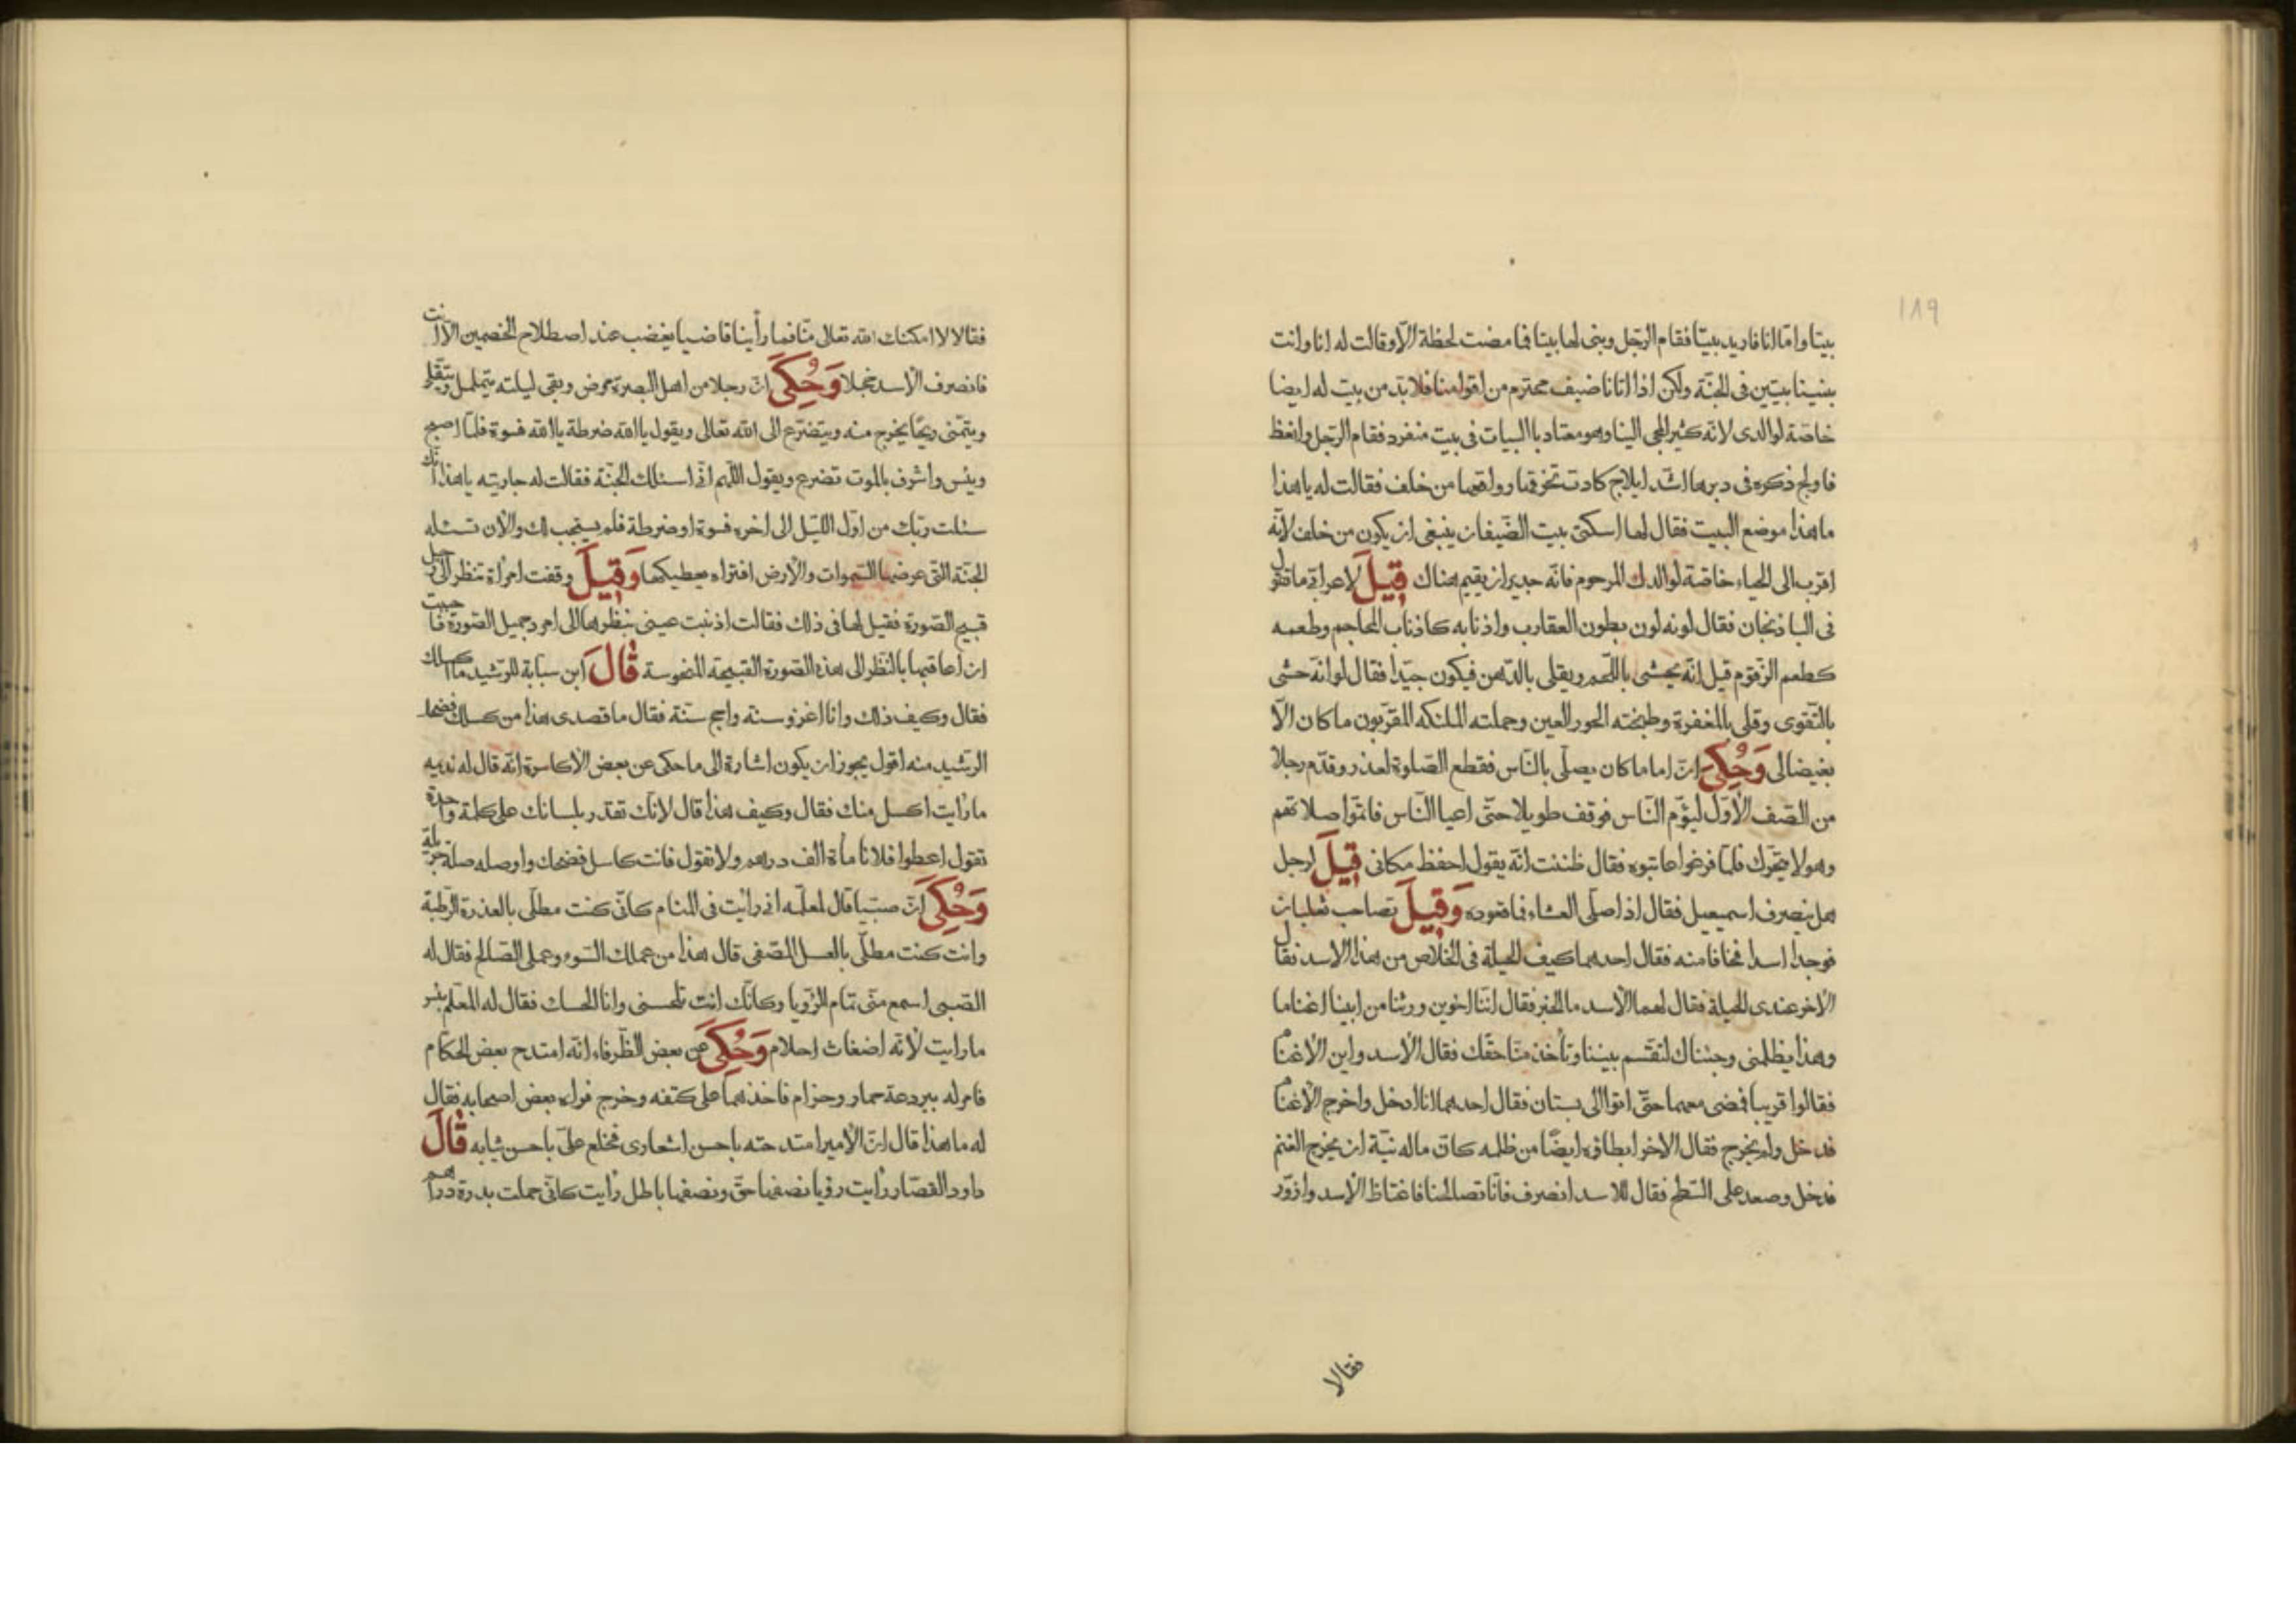 ١٨٩
بيتا وامّا انا فاريد بيتا فقام الرّجل وبنى لها بيتا فما مضت لحظة الّا وقالت له انا وانت
بنينا بيتين فى الجنّة ولكن اذا اتانا ضيف محترم من اقوامنا فلا بدّ من بيت له ايضا
خاصّة لوالدى لانّه كثير المجى الينا وهو معتاد بالبيات فى بيت منفرد فقام الرّجل وانعظ
فاولج ذكره فى دبرها اشدّ ايلاج كادت تخرقها رواقها من خلف فقالت له يا هذا
ما هذا موضع البيت فقال لها اسكتى بيت الضّيفان ينبغى ان يكون من خلف لانّه
اقرب الى الحياء خاصّة لوالدك المرحوم فانّه جدير ان يقيم هناك قِيلَ لاعرابىّ ما تقول
فى الباذنجان فقال لونه لون بطون العقارب واذنابه كاذناب المحاجم وطعمه
كطعم الزّقوم قيل انّه يحشى باللّحم ويقلى بالدّهن فيكون جيّدا فقال لو انّه حشى
بالتّقوى وقلى بالمغفرة وطبخته الحور العين وحملته الملئكه المقرّبون ما كان الّا
بغيضا الى وَحُكِىَ انّ اماما كان يصلّى بالنّاس فقطع الصّلوة لعذر وقدّم رجلا
من الصّف الأوّل ليؤم النّاس فوقف طويلا حتّى اعيا النّاس فاتمّوا صلاتهم
وهو لا يتحرّك فلمّا فرغوا عاتبوه فقال ظننت انّه يقول احفظ مكانى قِيلَ لرجل
هل ينصرف اسمعيل فقال اذا صلّى العشاء فما قعوده وَقِيلَ تصاحب ثعلبان
فوجدا اسدا فخافا منه فقال احدهما كيف الحيلة فى الخلاص من هذا الاسد فقال
الاخر عندى الحيلة فقال لهما الأسد ما الخبر فقال انّنا اخوين ورثنا من ابينا اغناما
وهذا يظلمنى وجئناك لتقسّم بيننا وتأخذ منّا حقّك فقال الأسد واين الأغنام
فقالوا قريبا فمضى معهما حتّى اتوا الى بستان فقال احدهما انا ادخل واخرج الأغنام
فدخل ولم يخرج فقال الاخر ابطاؤه ايضًا من ظلمه كانّ ماله نيّة ان يخرج الغنم
فدخل وصعد على السّطح فقال للاسد انصرف فانّا تصالحنا فاغتاظ الأسد وازورّ
فقالا
فقالا لا امكنك الله تعالى منّا فما رأينا قاضيا يغضب عند اصطلاح الخصمين الّا انت
فانصرف الأسد خجلا وَحُكِىَ انّ رجلا من اهل البصرة مرض وبقى ليلته يتململ ويتقلّب
ويتمنّى ريحًا يخرج منه ويتضرّع الى الله تعالى ويقول يا الله ضرطة يا الله فسوة فلمّا اصبح
ويئس واشرف بالموت تضرع ويقول اللّهم انّى اسئلك الجنّة فقالت له جاريته يا هذا انّك
سئلت ربّك من اوّل اللّيل الى اخره فسوة او ضرطة فلم يستجب لك والأن تسئله
الجنّة التّى عرضها السّموات والأرض افتراه يعطيكها وَقِيلَ وقفت امرأة تنظر الى رجل
قبيح الصّورة فقيل لها فى ذلك فقالت اذنبت عينى بنظرها الى امرد جميل الصّورة فاحببت
ان اعاقبها بالنّظر الى هذه الصّورة القبيحة المنحوسة قَالَ ابن سبّابة للرّشيد ما اكسلك
فقال وكيف ذلك وانا اغزو سنة واحج سنة فقال ما قصدى هذا من كسلك فضحك
الرّشيد منه اقول يجوز ان يكون اشارة الى ما حكى عن بعض الأكاسرة انّه قال له نديمه
ما رأيت اكسل منك فقال وكيف هذا قال لأنّك تقدر بلسانك على كلمة واحدة
تقول اعطوا فلانا مأة الف درهم ولا تقول فانت كاسل فضحك واوصله صلة جزيلة
وَحُكِىَ انّ صبيّا قال لمعلّمه انى رأيت فى المنام كانّى كنت مطلّى بالعذرة الرّطبة
وانت كنت مطلّى بالعسل المصفى قال هذا من عملك السّوء وعملى الصّالح فقال له
الصّبى اسمع منّى تمام الرّؤيا وكانّك انت تلحسنى وانا الحسك فقال له المعلّم بئس
ما رايت لأنّه اضغاث احلام وَحُكِىَ عن بعض الظّرفاء انّه امتدح بعض الحكّام
فامر له ببردعة حمار وحزام فاخذهما على كتفه وخرج فراءه بعض اصحابه فقال
له ما هذا قال انّ الأمير امتدحته باحسن اشعارى فخلع علىّ باحسن ثيابه قَالَ
داود القصّار رأيت رؤيا نصفها حقّ ونصفها باطل رأيت كانّى حملت بدرة دراهم